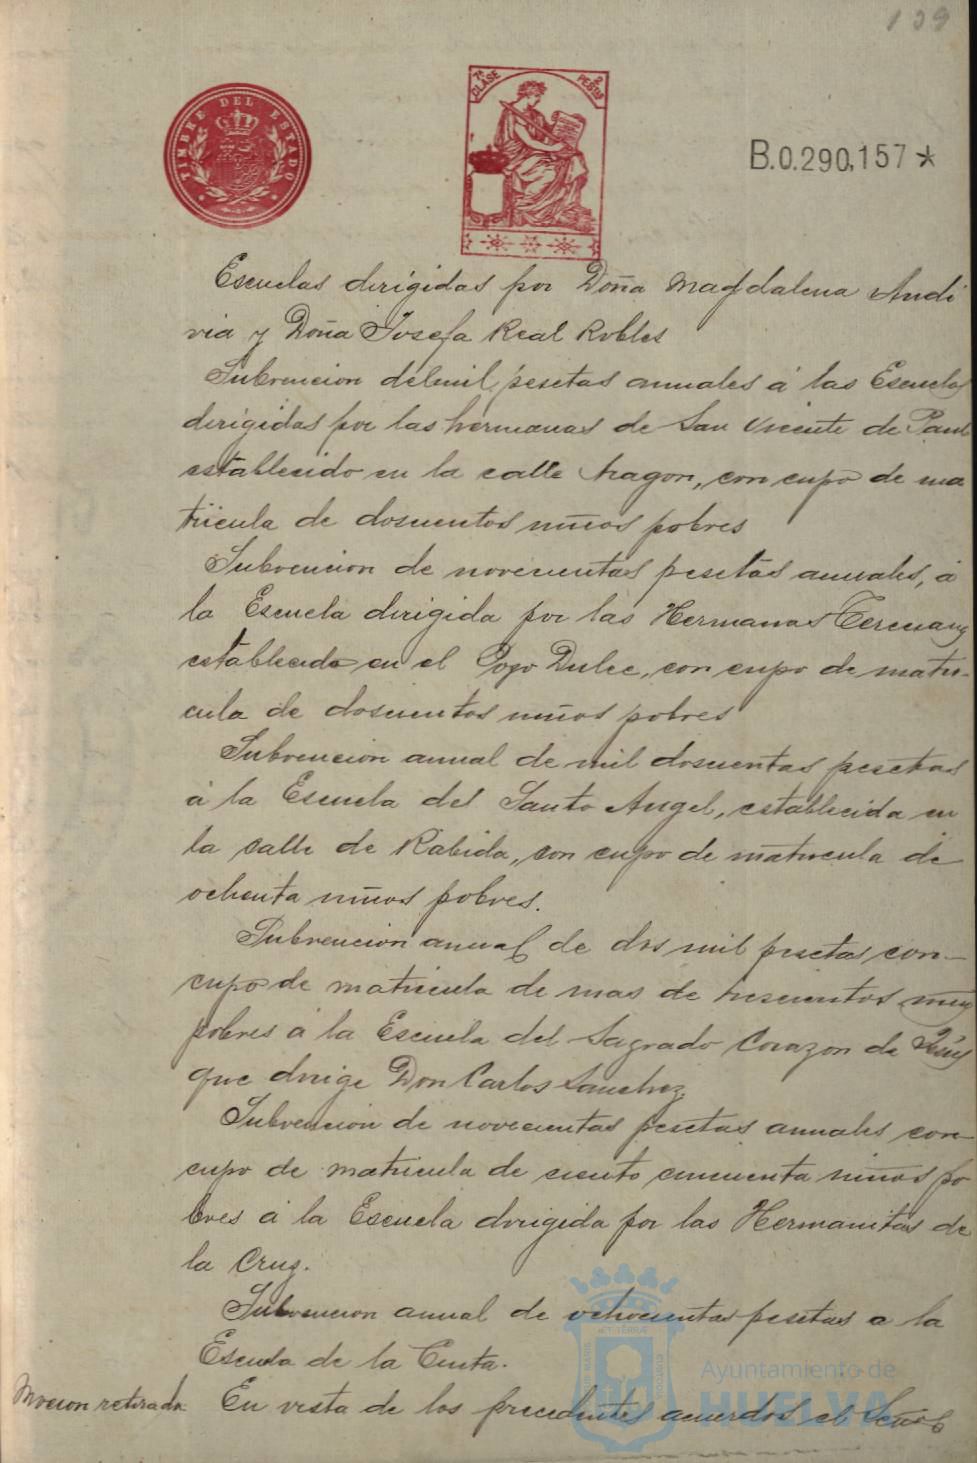 139
TIMBRE DEL ESTADO
7ª CLASE
2 PESETAS
B.0.290,157 *
Escuelas dirigidas por Doña Magdalena Andi
via y Doña Josefa Real Robles
Subvencion de mil pesetas anuales á las Escuelas
dirigidas por las hermanas de San Vicente de Paul
establecido en la calle Aragon, con cupo de ma
tricula de doscientos niños pobres
Subvencion de novecientas pesetas anuales, á
la Escuela dirigida por las Hermanas Teresianas
establecida en el Pozo Dulce, con cupo de matri-
cula de doscientos niños pobres
Subvencion anual de mil doscientas pesetas
á la Escuela del Santo Angel, establecida en
la calle de Rabida, con cupo de matricula de
ochenta niños pobres.
Subvencion anual de dos mil pesetas con-
cupo de matricula de mas de trescientos niños
pobres á la Escuela del Sagrado Corazon de Jesús
que dirige Don Carlos Sanchez.
Subvencion de novecientas pesetas anuales con-
cupo de matricula de ciento cincuenta niños po
bres á la Escuela dirigida por las Hermanitas de
la Cruz.
Subvencion anual de ochocientas pesetas a la
Escuela de la Cinta.
Mocion retirada
En vista de los precedentes acuerdos el Señor
Ayuntamiento de
HUELVA